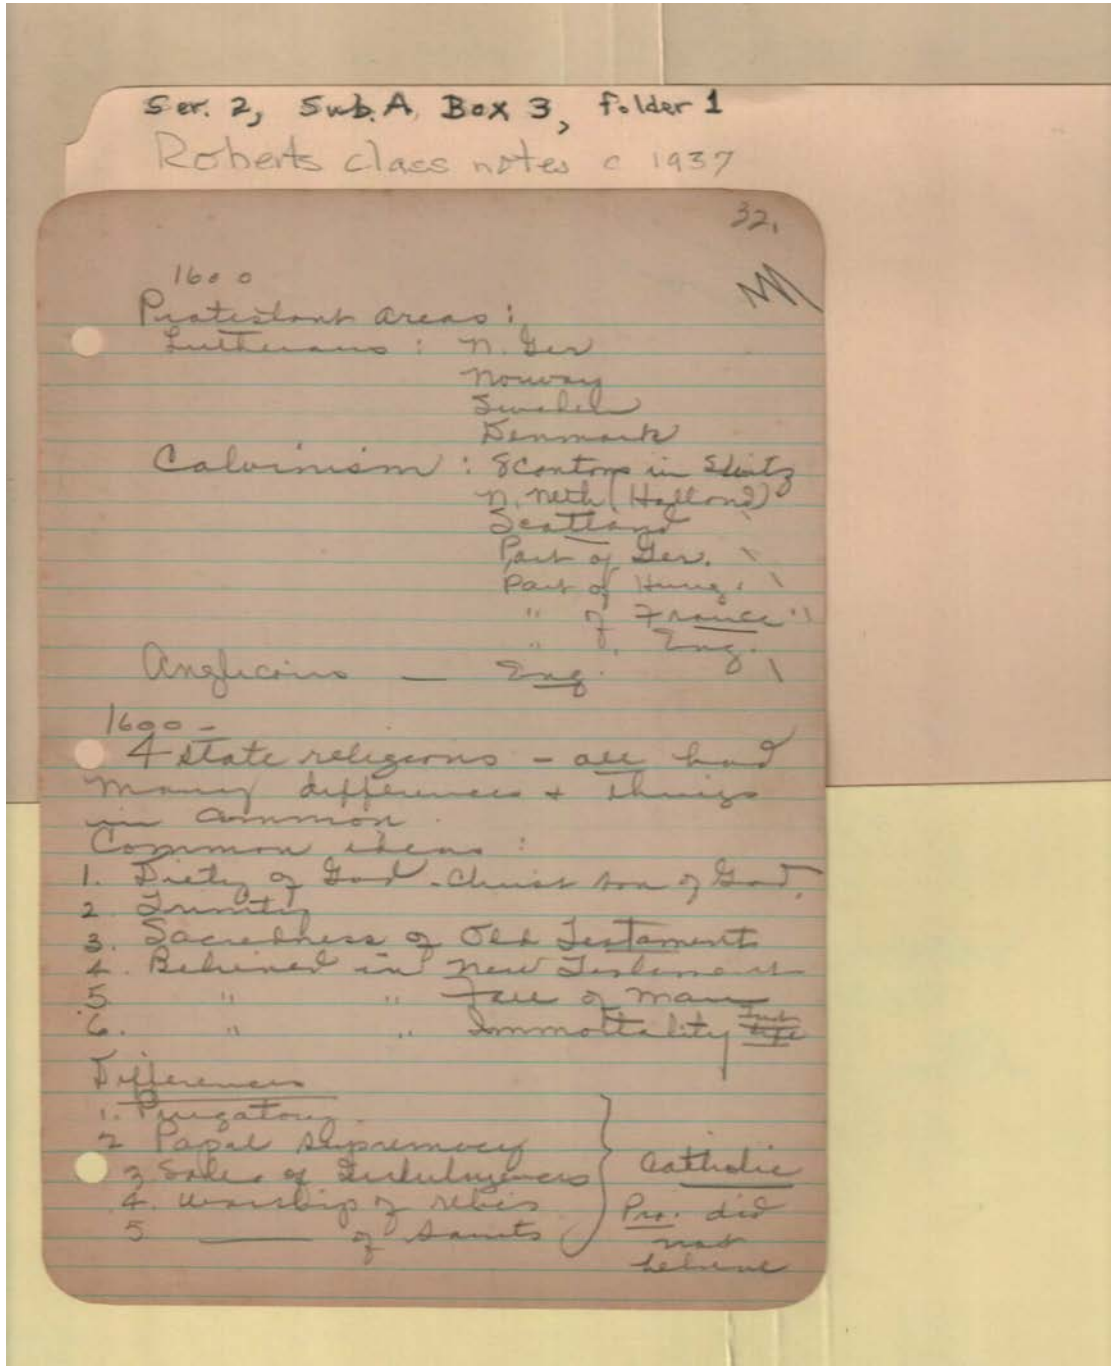 Ser. 2, Sub. A, Box 3, folder 1
Roberts class notes c 1937
32.
1600
Protestant areas:
Lutherans : N. Ger
Norway
Sweden
Denmark
Calvinism : 8 Cantons in
N. Neth (Holland)
Scotland
Part of Ger.
Part of Hung.
" of France "
" of, Eng.
Anglicans — Eng.
1600 -
4 state religions - all had
many differences + things
in common.
Common ideas :
1. Diety of God - Christ son of God.
2. Trinity
3. Sacredness of Old Testament
4. Believed in New Testament
5 " " Fall of man
6. " " Immortality
Differences
1. Purgatory
2 Papal supremacy
3 Sales of Indulugences
4. Worship of relics
5 ——— of saints
Catholic
Pro. did
not
believe